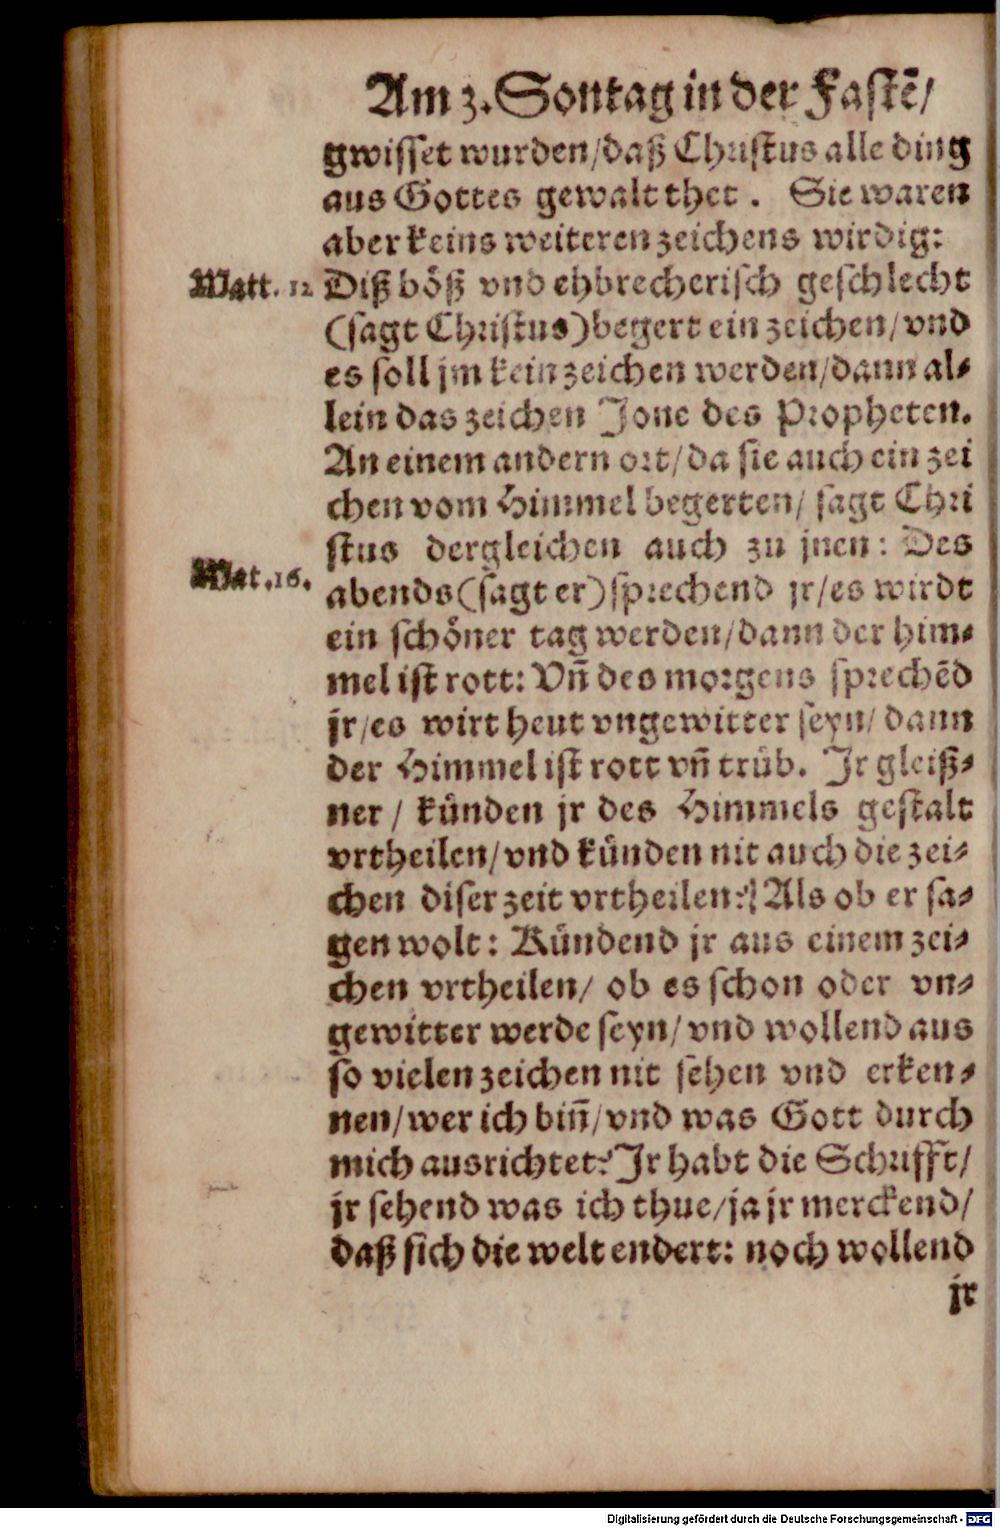 Am 3. Sontag in der Fastẽ/
gwisset wurden/daß Christus alle ding
aus Gottes gewalt thet. Sie waren
aber keins weiteren zeichens wirdig:
Matt. 12 Diß böß vnd ehbrecherisch geschlecht
(sagt Christus)begert ein zeichen/vnd
es soll jm kein zeichen werden/dann al-
lein das zeichen Jone des Propheten.
An einem andern ort/da sie auch ein zei
chen vom Himmel begerten/ sagt Chri
stus dergleichen auch zu jnen: Des
Mat.16. abends(sagt er)sprechend jr/es wirdt
ein schöner tag werden/dann der him-
mel ist rott: Vñ des morgens sprechẽd
jr/es wirt heut vngewitter seyn/dann
der Himmel ist rott vñ trüb. Jr gleiß-
ner/ künden jr des Himmels gestalt
vrtheilen/vnd künden nit auch die zei-
chen diser zeit vrtheilen? Als ob er sa-
gen wolt: Kündend jr aus einem zei-
chen vrtheilen/ ob es schon oder vn-
gewitter werde seyn/vnd wollend aus
so vielen zeichen nit sehen vnd erken-
nen/wer ich biñ/vnd was Gott durch
mich ausrichtet? Jr habt die Schrifft/
jr sehend was ich thue/ja jr merckend/
daß sich die welt endert: noch wollend
jr
Digitalisierung gefördert durch die Deutsche Forschungsgemeinschaft - DFG